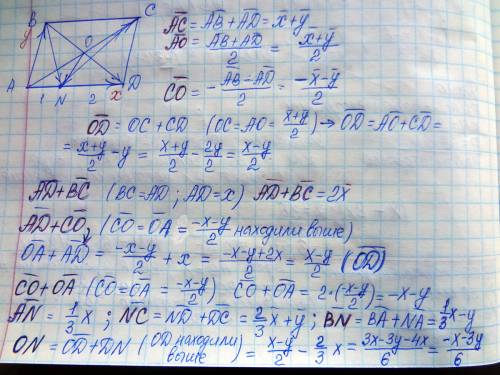 B C
y O
A 1 N 2 x D
A̅C̅ = A̅B̅ + A̅D̅ = x̅ + y̅
A̅O̅ = (A̅B̅ + A̅D̅)/2 = (x̅ + y̅)/2
C̅O̅ = -(A̅B̅ - A̅D̅)/2 = (-x̅ - y̅)/2
O̅D̅ = OC + CD (OC = AO = (x̅+y̅)/2) → O̅D̅ = A̅O̅ + C̅D̅ =
= (x+y)/2 - y = (x+y)/2 - 2y/2 = (x-y)/2
A̅D̅ + B̅C̅ (BC = AD ; AD = x) A̅D̅ + B̅C̅ = 2x̅
A̅D̅ + C̅O̅, (C̅O̅ = O̅A̅ = (-x-y)/2 находили выше)
O̅A̅ + A̅D̅ = (-x-y)/2 + x = (-x-y+2x)/2 = (x-y)/2 (O̅D̅)
C̅O̅ + O̅A̅ (C̅O̅ = O̅A̅ = (-x-y)/2) C̅O̅ + O̅A̅ = 2·(-x-y)/2) = -x-y
A̅N̅ = 1/3 x ; N̅C̅ = N̅D̅ + D̅C̅ = 2/3 x + y ; BN = BA + NA = 1/3 x - y
O̅N̅ = OD + DN (OD находили выше) = (x-y)/2 - 2/3 x = (3x-3y-4x)/6 = (-x-3y)/6